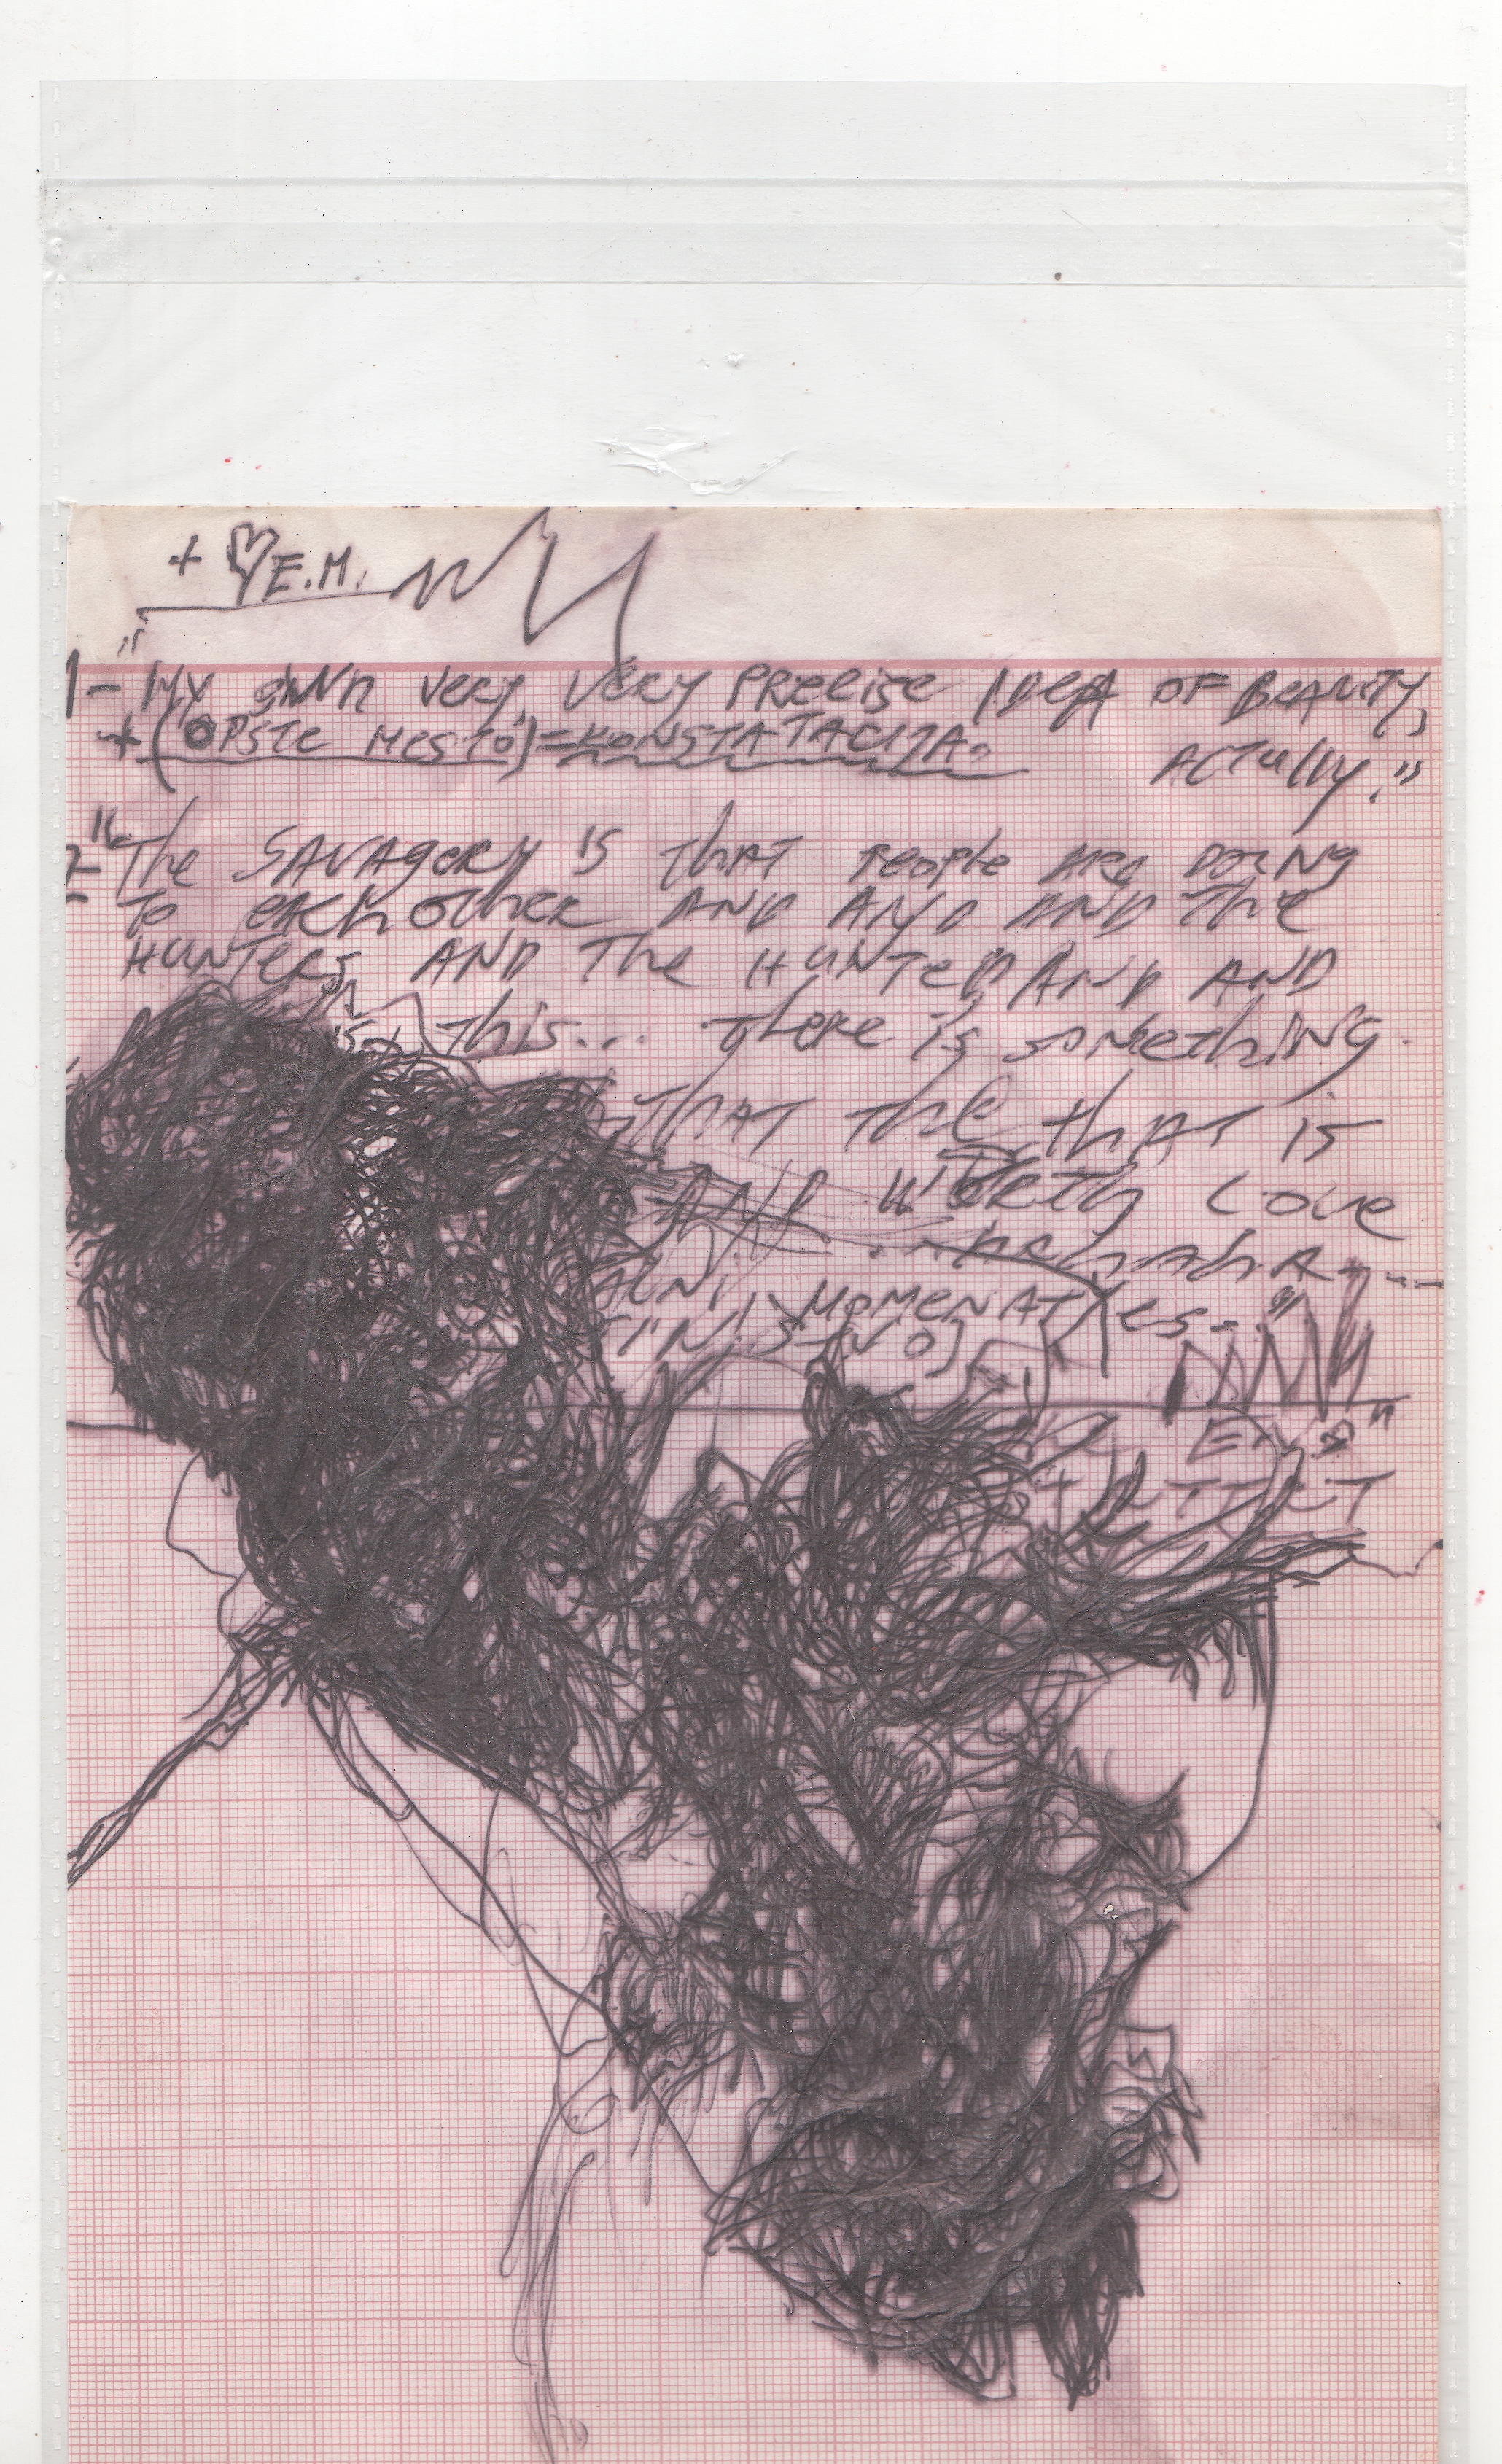 + ♡ E.M.
1- "My own very, very precise idea of Beauty,
+ (OPSTE MESTO) = KONSTATACIJA.
Actually."
2- "The SAVAGERY is that people are doing
to each other AND AND AND the
HUNTERS AND The HUNTED AND AND
is this... there is something
that the that is
AND worth Love
MOMENAT yes..."